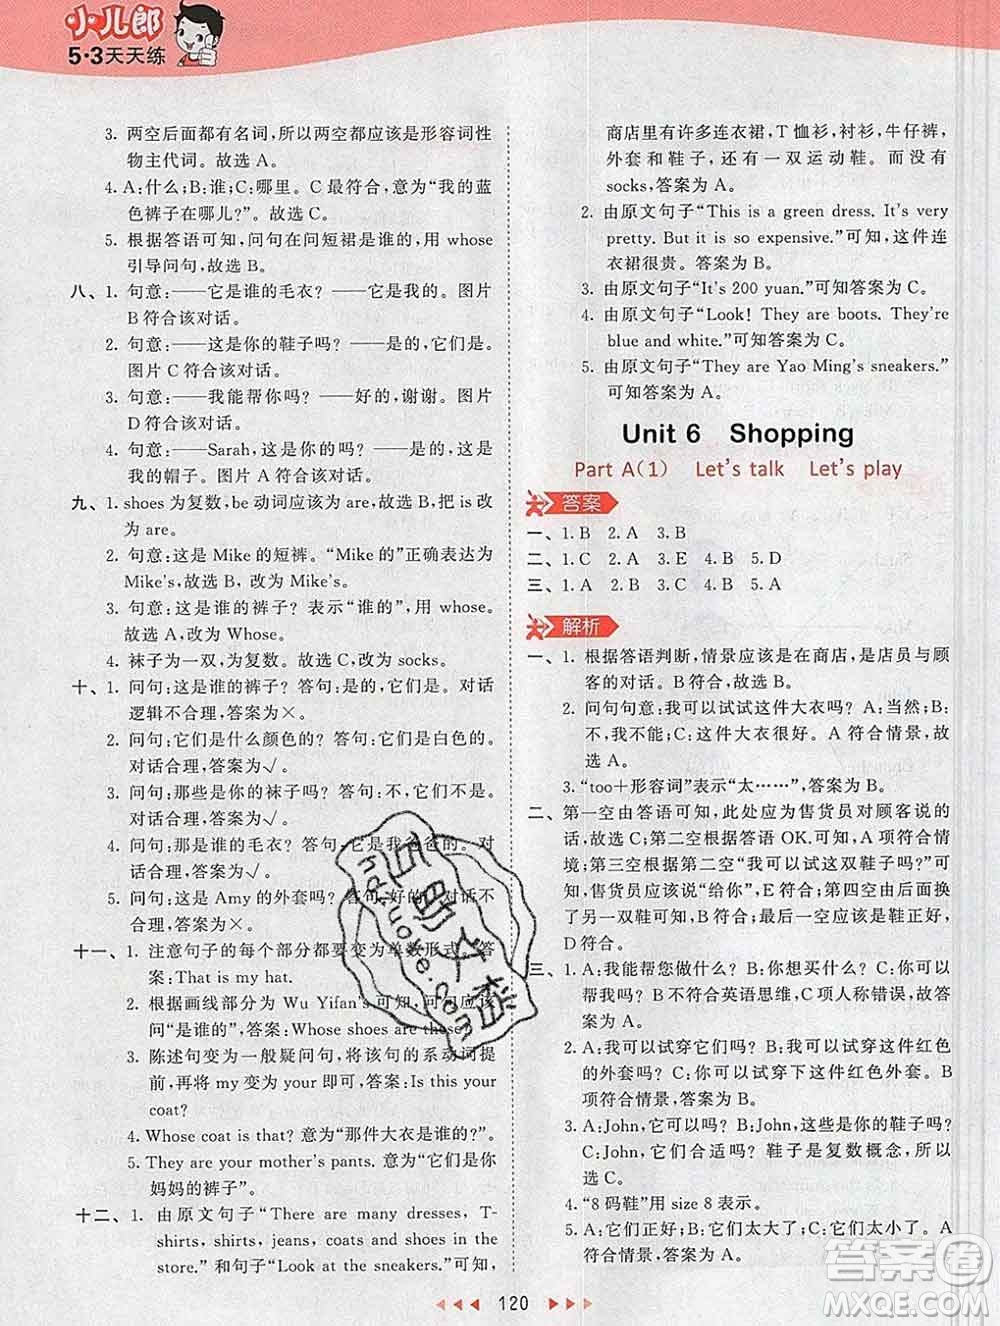 小儿郎
5·3天天练
3. 两空后面都有名词,所以两空都应该是形容词性
物主代词。故选 A。
4. A:什么;B:谁;C:哪里。C 最符合,意为“我的蓝
色裤子在哪儿?”。故选 C。
5. 根据答语可知,问句在问短裙是谁的,用 whose
引导问句,故选 B。
八、1. 句意:——它是谁的毛衣? ——它是我的。图片
B 符合该对话。
2. 句意:——这是你的鞋子吗? ——是的,它们是。
图片 C 符合该对话。
3. 句意:——我能帮你吗? ——好的,谢谢。图片
D 符合该对话。
4. 句意:——Sarah,这是你的吗? ——是的,这是
我的帽子。图片 A 符合该对话。
九、1. shoes 为复数,be 动词应该为 are,故选 B,把 is 改
为 are。
2. 句意:这是 Mike 的短裤。“Mike 的”正确表达为
Mike's,故选 B,改为 Mike's。
3. 句意:这是谁的裤子? 表示“谁的”用 whose。
故选 A,改为 Whose。
4. 袜子为一双,为复数。故选 C,改为 socks。
十、1. 问句:这是谁的裤子? 答句:是的,它是。对话
逻辑不合理,答案为×。
2. 问句:它们是什么颜色的? 答句:它们是白色的。
对话合理,答案为√。
3. 问句:那些是你的袜子吗? 答句:不,它们不是。
对话合理,答案为√。
4. 问句:那是谁的毛衣? 答句:它是我爸爸的。对
话合理,答案为√。
5. 问句:这是 Amy 的外套吗? 答句:好的。对话不
合理,答案为×。
十一、1. 注意句子的每个部分都要变为单数形式。答
案:That is my hat.
2. 根据画线部分为 Wu Yifan's 可知,问句应该
问“是谁的”,答案:Whose shoes are these?
3. 陈述句变为一般疑问句,将该句的系动词提
前,再将 my 变为 your 即可,答案:Is this your
coat?
4. Whose coat is that? 意为“那件大衣是谁的?”。
5. They are your mother's pants. 意为“它们是你
妈妈的裤子”。
十二、1. 由原文句子“There are many dresses, T-
shirts, shirts, jeans, coats and shoes in the
store.”和句子“Look at the sneakers.”可知,
商店里有许多连衣裙,T 恤衫,衬衫,牛仔裤,
外套和鞋子,还有一双运动鞋。而没有
socks,答案为 A。
2. 由原文句子“This is a green dress. It's very
pretty. But it is so expensive.”可知,这件连
衣裙很贵。答案为 B。
3. 由原文句子“It's 200 yuan.”可知答案为 C。
4. 由原文句子“Look! They are boots. They're
blue and white.”可知答案为 C。
5. 由原文句子“They are Yao Ming's sneakers.”
可知答案为 A。
Unit 6 Shopping
Part A(1) Let's talk Let's play
答案
一、1. B 2. A 3. B
二、1. C 2. A 3. E 4. B 5. D
三、1. A 2. B 3. C 4. B 5. A
解析
一、1. 根据答语判断,情景应该是在商店,是店员与顾
客的对话。B 符合,故选 B。
2. 问句句意:我可以试试这件大衣吗? A:当然;B:
不,我不能;C:这件大衣很好。A 符合情景,故
选 A。
3. “too+形容词”表示“太……”,答案为 B。
二、第一空由答语可知,此处应为售货员对顾客说的
话,故选 C;第二空根据答语 OK.可知,A 项符合情
境;第三空根据第二空“我可以试这双鞋子吗?”可
知,售货员应该说“给你”,E 符合;第四空由后面换了
另一双鞋可知,B 符合;最后一空应该是鞋正好,
D 符合。
三、1. A:我能帮您做什么? B:你想买什么? C:你可以
帮我吗? B 不符合英语思维,C 项人称错误,故
选 A。
2. A:我可以试穿它们吗? B:我可以试穿这件红色
的外套吗? C:你可以试穿这件红色外套。B 项
符合情景,答案为 B。
3. A:John,它可以吗? B:John,这些是你的鞋子吗?
C:John,它们合适吗? 鞋子是复数概念,所以
选 C。
4. “8 码鞋”用 size 8 表示。
5. A:它们正好;B:它们太大了;C:它们太小了。A
符合情景,故答案为 A。
120
互助文档
hdzuoke.com
答案圈
MXQE.COM